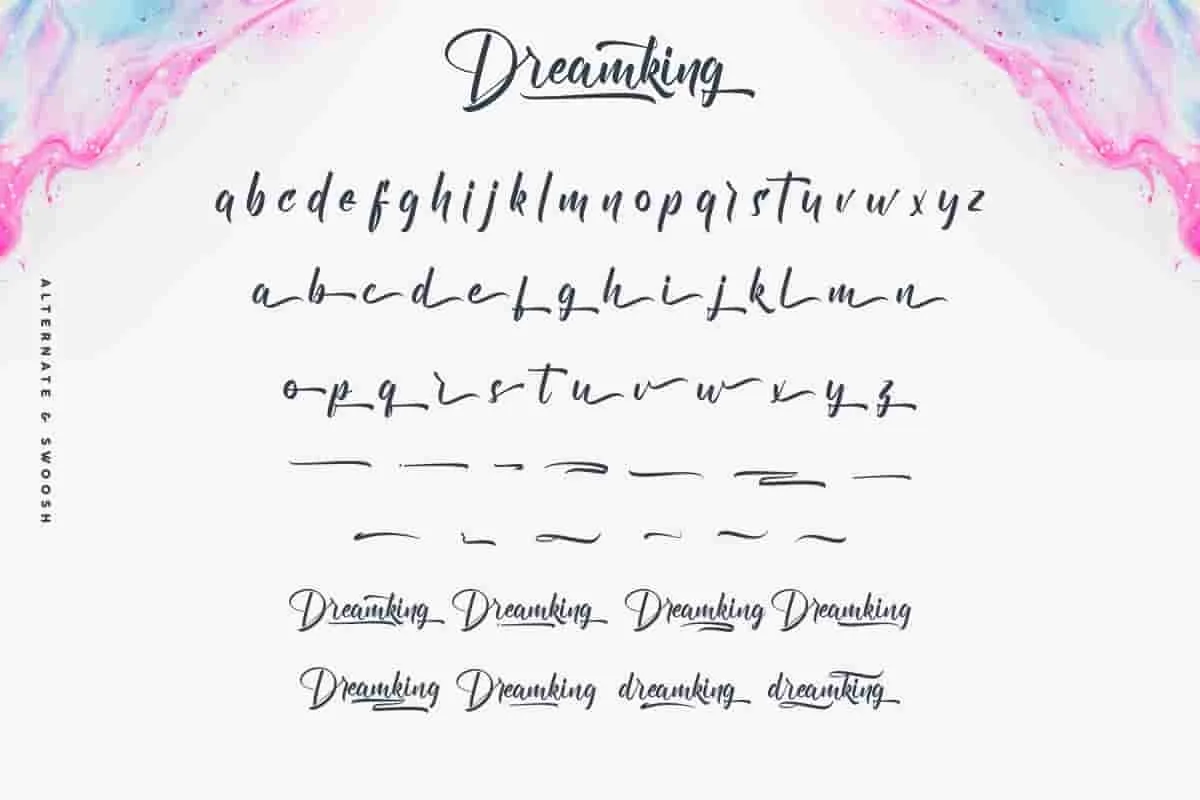 Dreamking
a b c d e f g h i j k l m n o p q r s t u v w x y z
a b c d e f g h i j k l m n
o p q r s t u v w x y z
Dreamking Dreamking Dreamking Dreamking
Dreamking Dreamking dreamking dreamking
ALTERNATE & SWOOSH